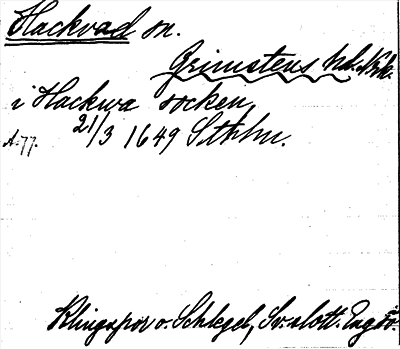 Hackvad sn.
Grimstens hd. Nrk.
i Hackwa socken
21/3 1649 Sthlm.
A:77.
Klingspor o. Schlegel, Sv. slott. Engsö.